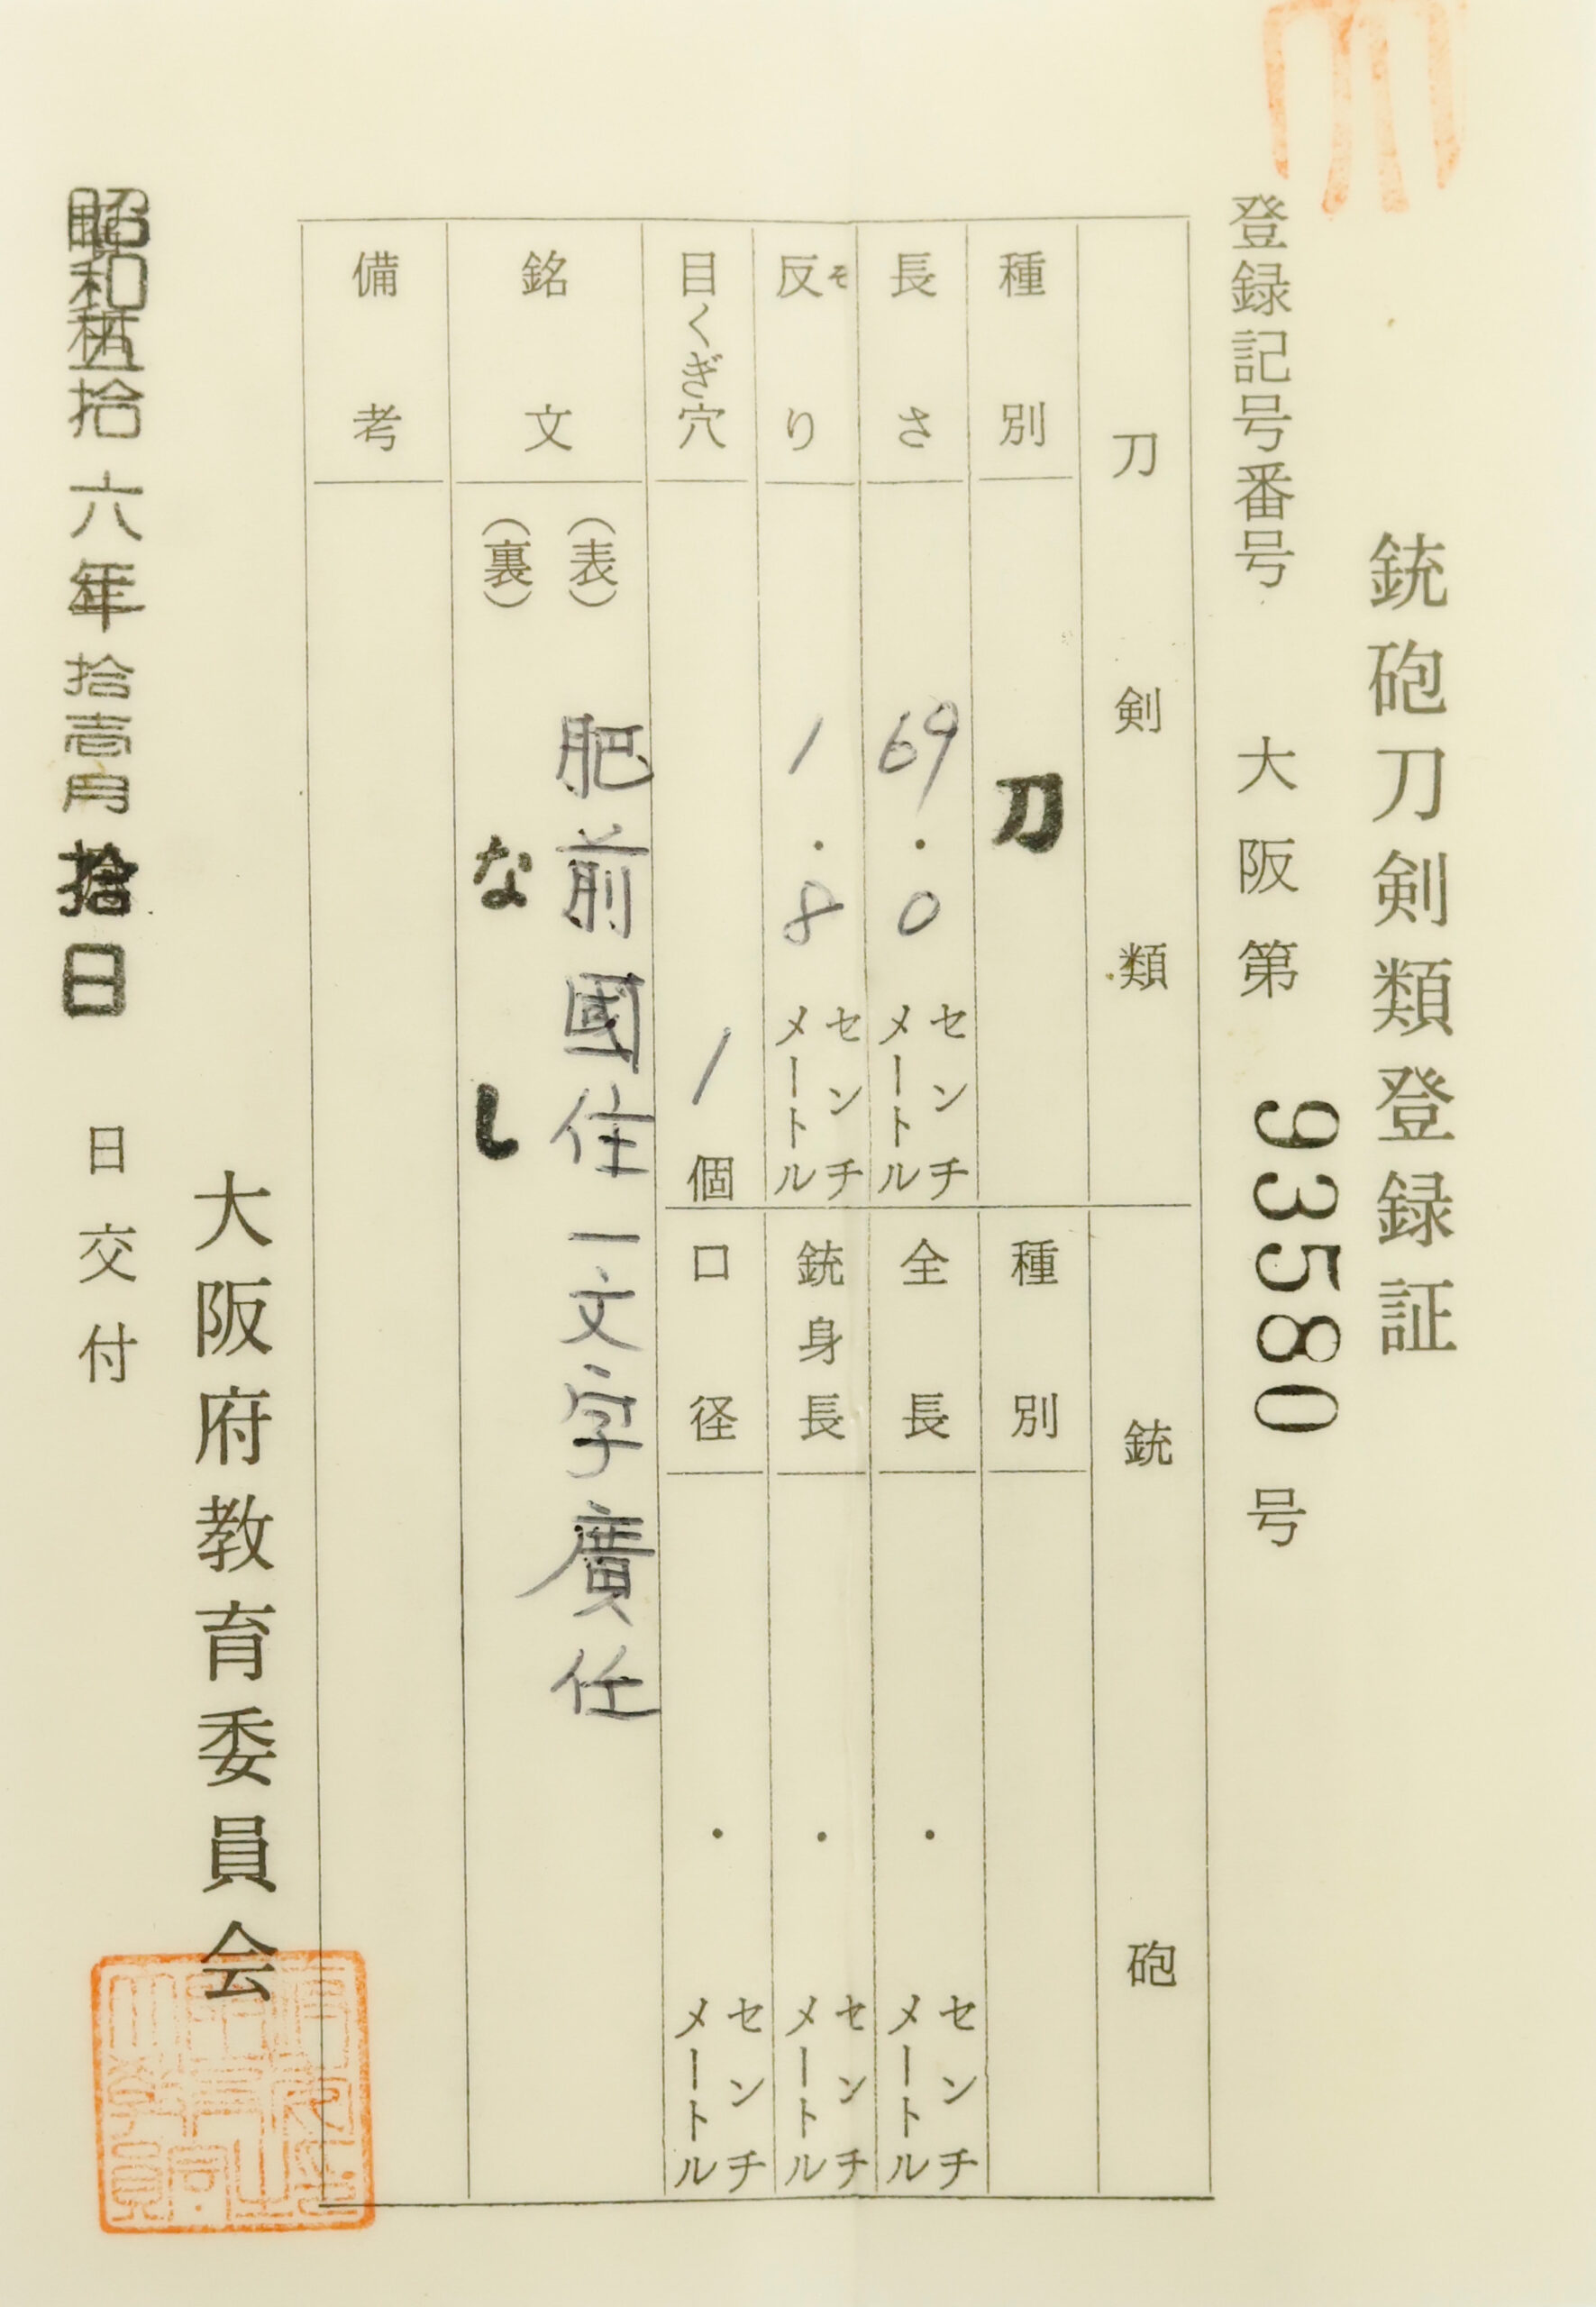 銃砲刀剣類登録証
登録記号番号 大阪第 93580 号
刀剣類
種別 刀
長さ 69.0 センチメートル
反り ソ 1.8 センチメートル
目くぎ穴 1 個
銃砲
種別
全長 ・ センチメートル
銃身長 ・ センチメートル
口径 ・ センチメートル
銘文 (表) 肥前國住一文字廣任
(裏) なし
備考
大阪府教育委員会
昭和五拾六年拾壹月拾日 日交付